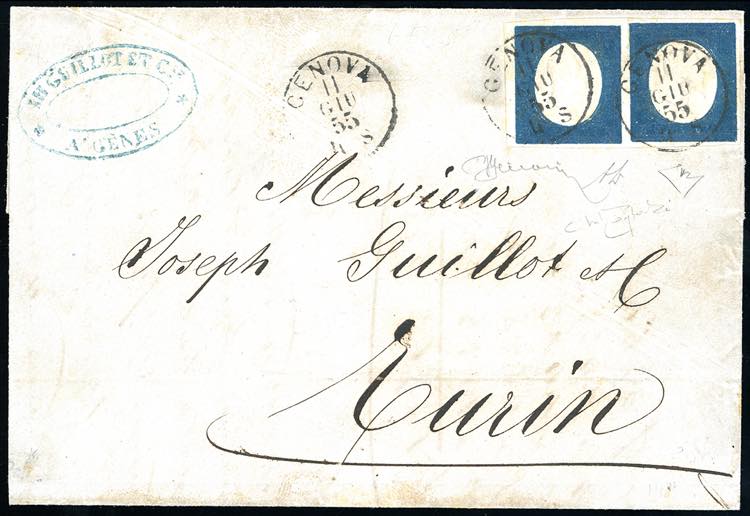 GUILLOT ET C.
A GÊNES
GENOVA
11
GIU
55
GENOVA
11
GIU
55
S
GENOVA
11
GIU
55
Messieurs
Joseph Guillot & C
Turin